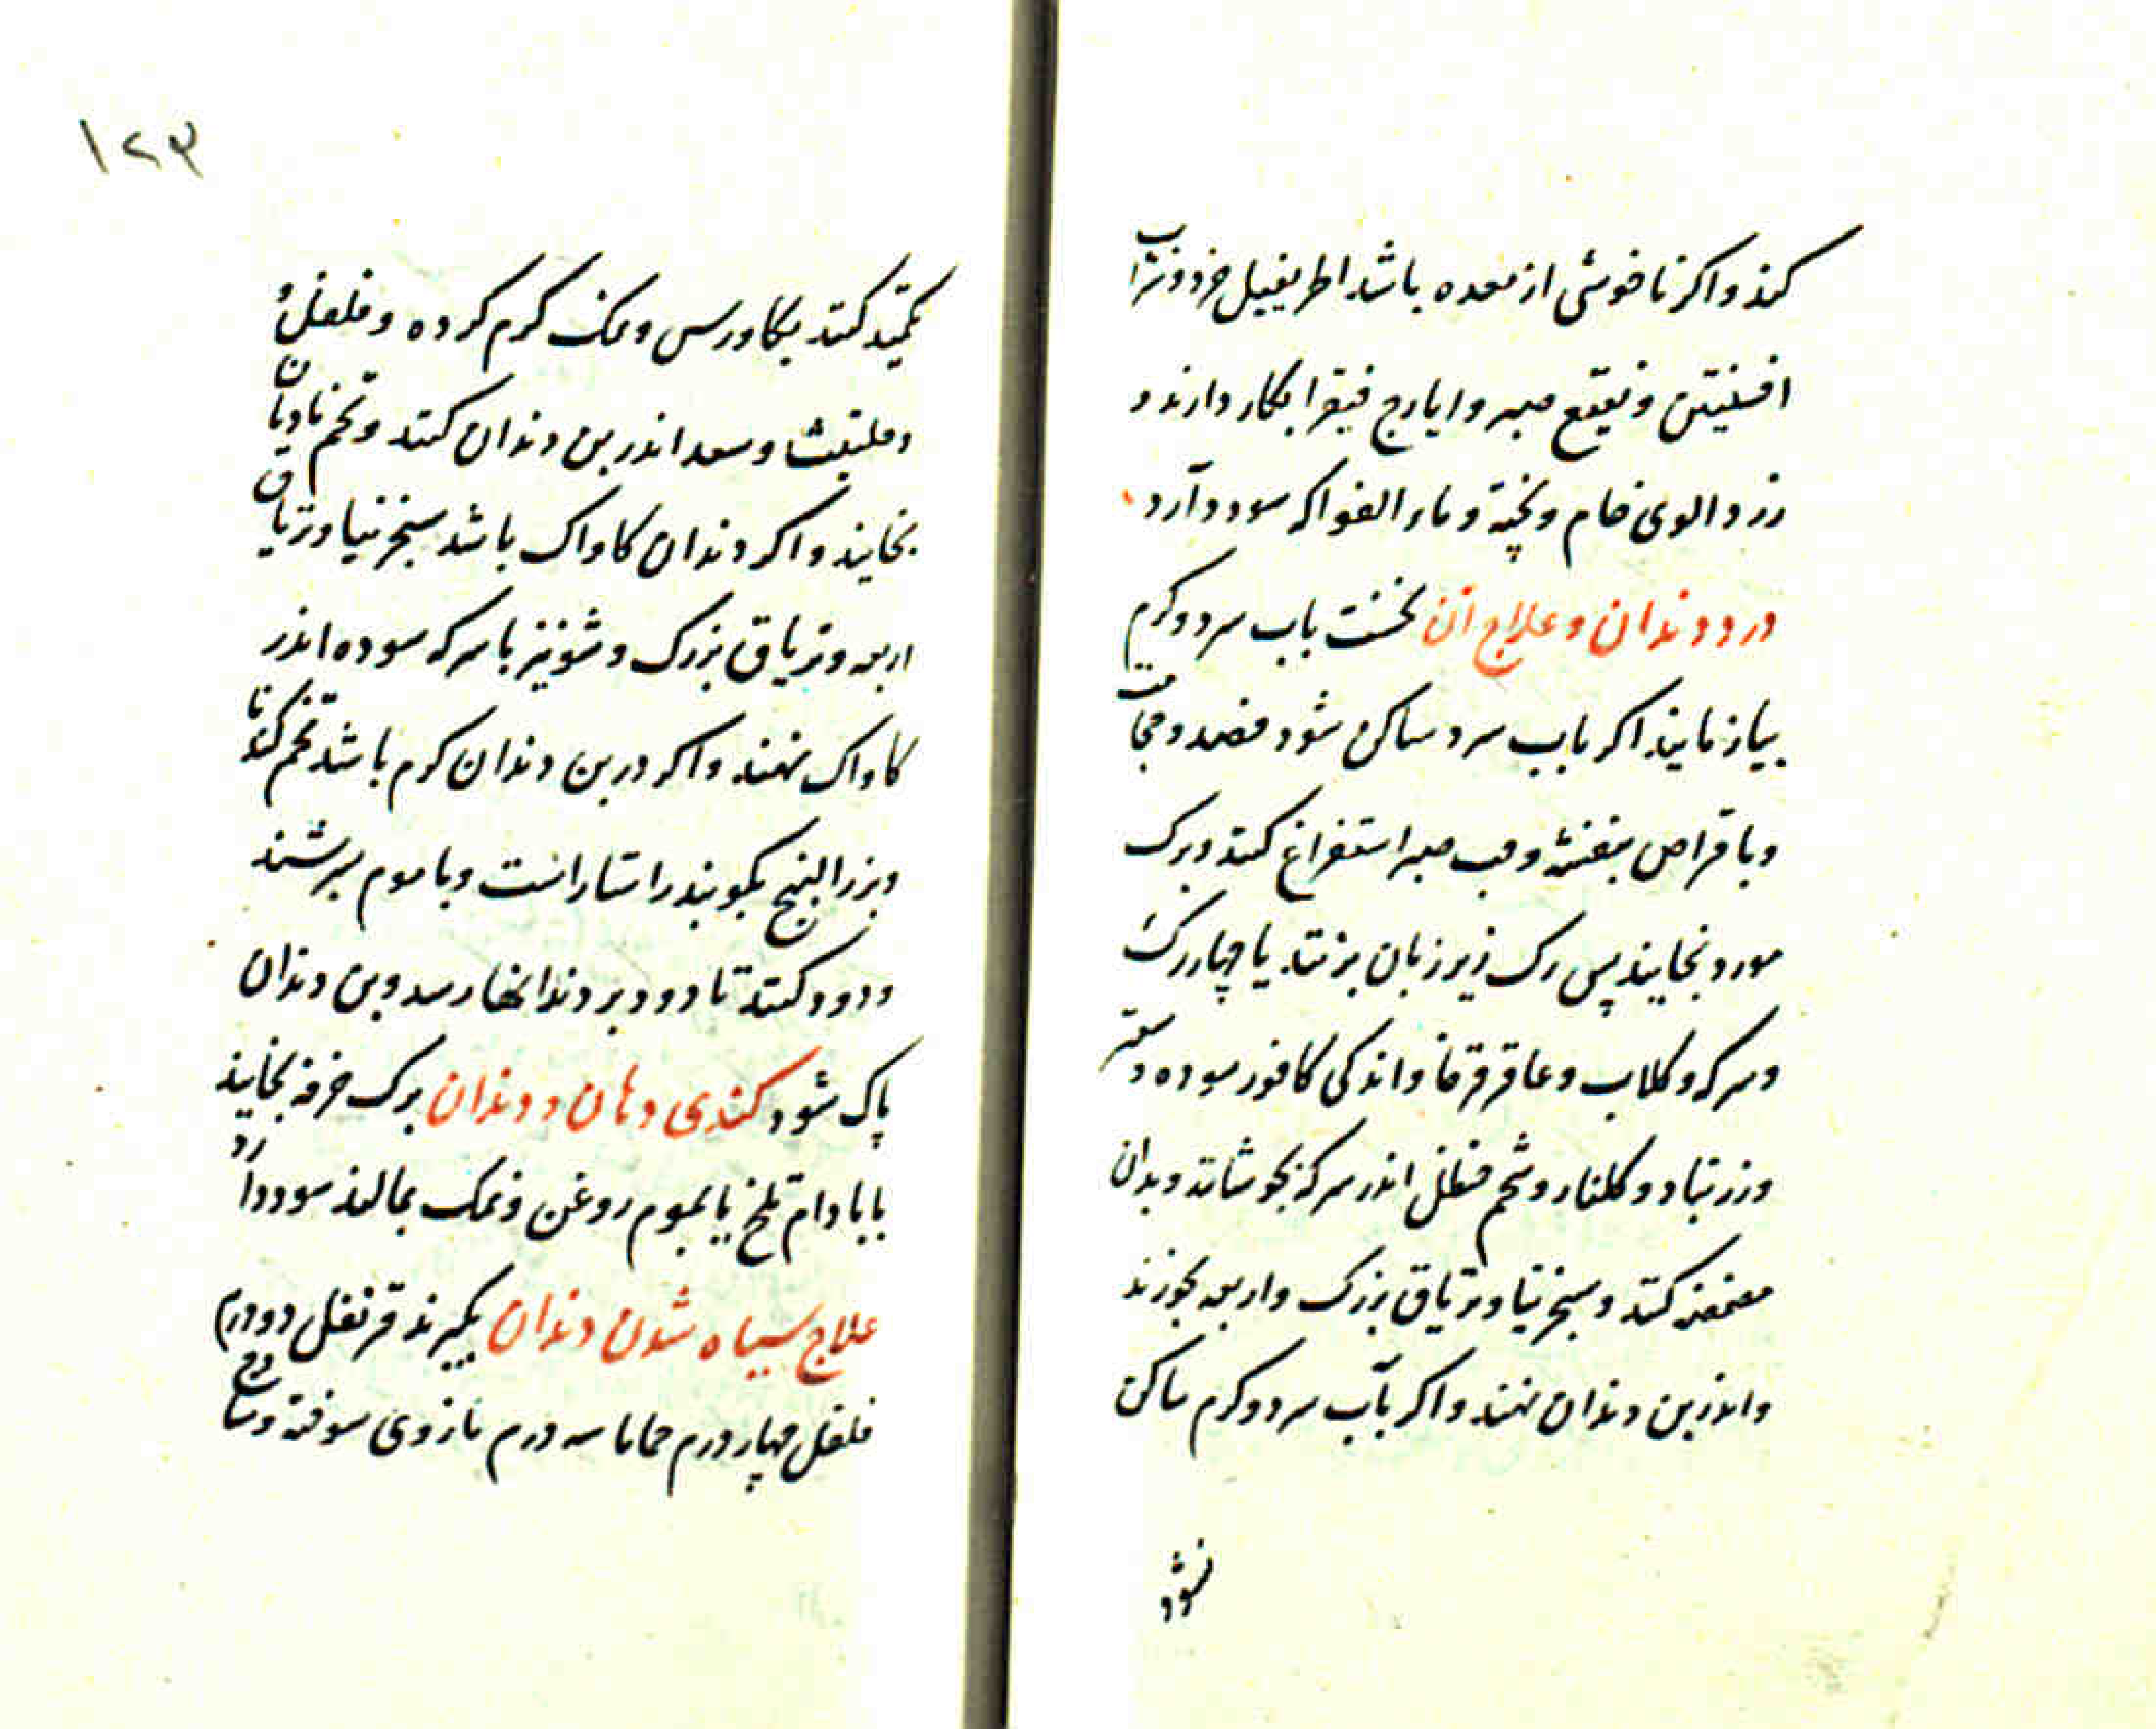 کند و اکر ناخوشی از معده باشد اطریفیل خرد و شراب
افسنتین و نقیع صبر و ایارج فیقرا بکار دارند و
زردالوی خام و پخته و ماء الفواکه سود دارد
درد دندان و علاج آن نخست باب سرد و کرم
بیازمایند اکر باب سرد ساکن شود فصد و حجامت
و باقراص بنفشه و حب صبر استفراغ کنند و برک
مورد بخایند پس رک زیر زبان بزنند یا چهاررک
و سرکه و کلاب و عاقرقرحا و اندکی کافور سوده و سعتر
و زرنباد و کلنار و شحم حنظل اندر سرکه بجوشانند و بدان
مضمضه کنند و سنجرنیا و تریاق بزرک و اربعه بخورند
و اندر بن دندان نهند و اکر بآب سرد و کرم ساکن
نشود
۱۲۳
کمید کنند بکاورس و نمک کرم کرده و فلفل و
و حلتیث و سعد اندر بن دندان کنند و تخم بادیان
بخایند و اکر دندان کاواک باشد سنجرنیا و تریاق
اربعه و تریاق بزرک و شونیز با سرکه سوده اندر
کاواک نهند و اکر در بن دندان کرم باشد تخم کندنا
و بزر البنج بکوبند راستاراست و با موم بسرشند
و دود کنند تا دود بر دندانها رسد و بن دندان
پاک شود کندی دهان و دندان برک خرفه بخایند
یا بادام تلخ یا بموم روغن و نمک بمالند سود دارد
علاج سیاه شدن دندان بکیرند قرنفل دو درم
فلفل چهار درم حماما سه درم مازوی سوخته و ساذج